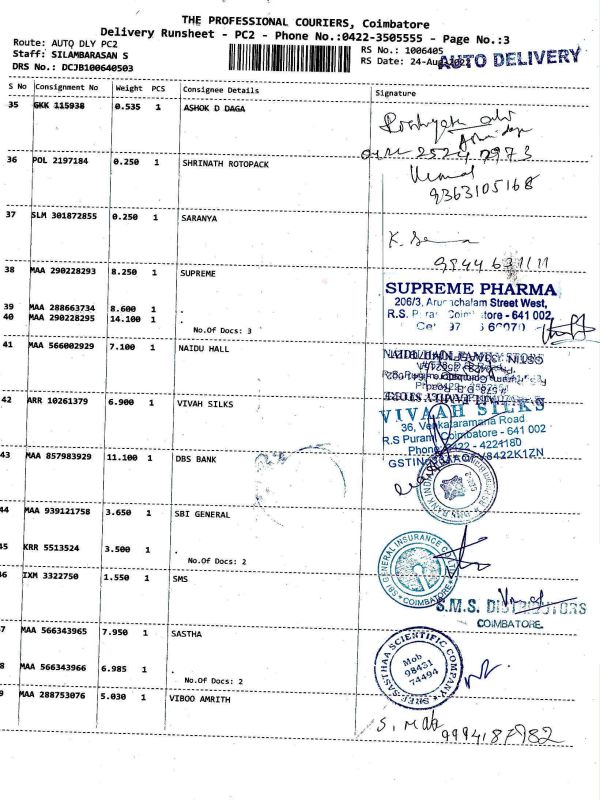 THE PROFESSIONAL COURIERS, Coimbatore
Delivery Runsheet - PC2 - Phone No.:0422-3505555 - Page No.:3
Route: AUTO DLY PC2
Staff: SILAMBARASAN S
DRS No.: DCJB100640503
RS No.: 1006405
RS Date: 24-Aug
AUTO DELIVERY
S No Consignment No Weight PCS Consignee Details Signature
35 GKK 115938 0.535 1 ASHOK D DAGA
2524 7973
36 POL 2197184 0.250 1 SHRINATH ROTOPACK
9363105168
37 SLM 301872855 0.250 1 SARANYA
K.
38 MAA 290228293 8.250 1 SUPREME
SUPREME PHARMA
206/3, Arunachalam Street West,
39 MAA 288663734 8.600 1 .
R.S. Puram Coimbatore - 641 002,
40 MAA 290228295 14.100 1 .
No.Of Docs: 3
41 MAA 566002929 7.100 1 NAIDU HALL
42 ARR 10261379 6.900 1 VIVAH SILKS
VIVAAH SILKS
36, Venkataramana Road
R.S Puram, Coimbatore - 641 002
Phone: 0422 - 4224180
43 MAA 857983929 11.100 1 DBS BANK
GSTIN
V8422K1ZN
DBS BANK INDIA
44 MAA 939121758 3.650 1 SBI GENERAL
45 KRR 5513524 3.500 1 .
No.Of Docs: 2
SBI GENERAL INSURANCE CO. LTD
COIMBATORE
46 IXM 3322750 1.550 1 SMS
S.M.S. DISTRIBUTORS
COIMBATORE.
47 MAA 566343965 7.950 1 SASTHA
SREE SASTHAA SCIENTIFIC COMPANY
Mob
98431
74494
48 MAA 566343966 6.985 1 .
No.Of Docs: 2
49 MAA 288753076 5.030 1 VIBOO AMRITH
9994187982